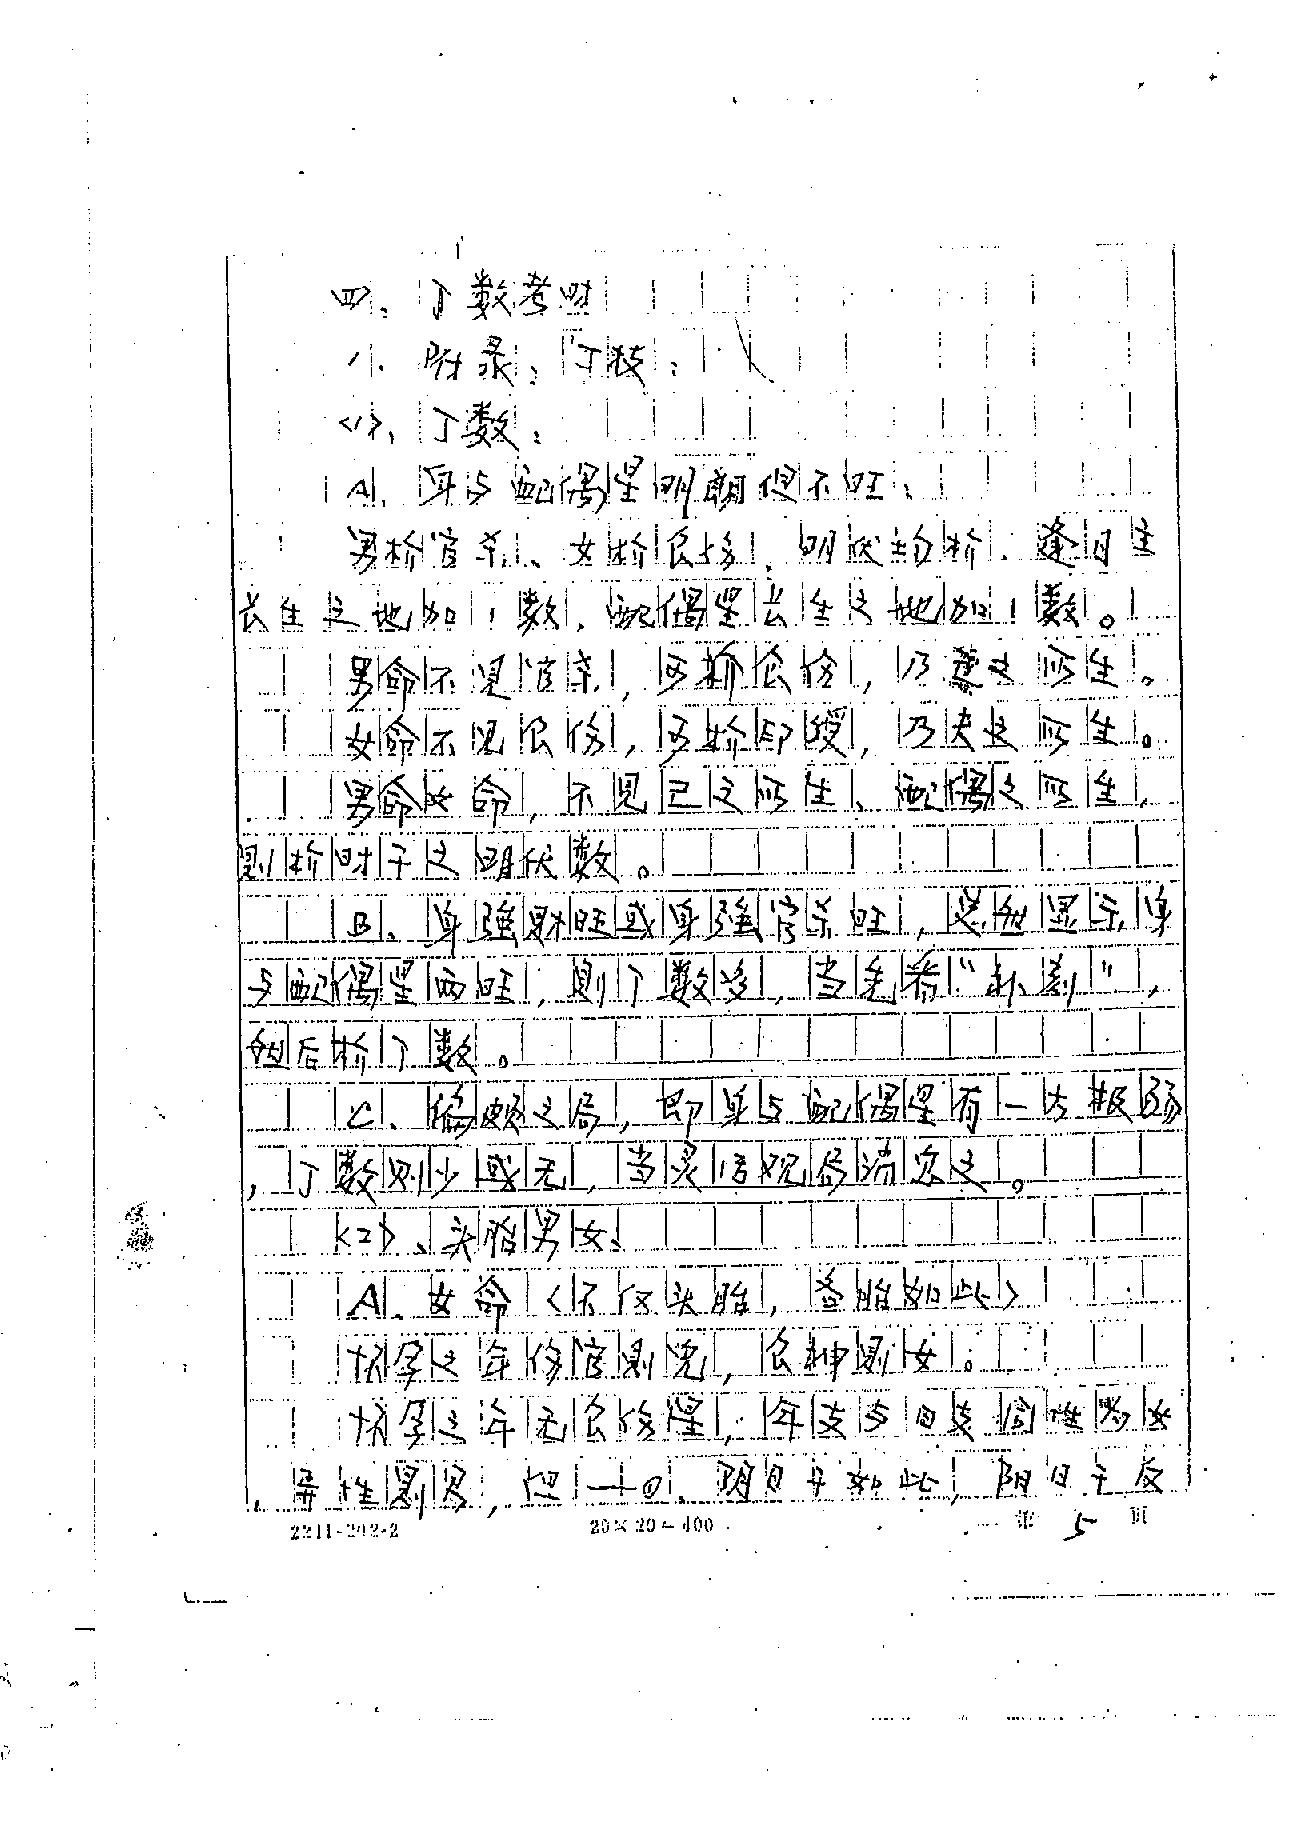 四、丁数考时
1、附录:丁技:
<1>、丁数:
A、身与配偶星明朗但不旺、
男析官杀、女析食伤、明伏均析、逢日主
长生之地加1数,配偶星长生之地加1数。
男命不见官杀,可析食伤,乃妻之所生。
女命不见食伤,可析印绶,乃夫之所生。
男命女命,不见己之所生、配偶之所生,
则析时干之明伏数。
B、身强财旺或身强官杀旺,显示身
与配偶星两旺,则丁数多,当先看“补割”,
然后析丁数。
C、偏颇之局,即身与配偶星有一方极弱
,丁数则少或无,当灵活观局而定之。
<2>、头胎男女、
A、女命<不仅头胎,各胎如此>
怀孕之年伤官则儿,食神则女。
怀孕之年无食伤星,年支与日支同性为女
,异性则男,但一〇、阴日干如此,阳日干反
2211-202-2 20×20=400 第5页